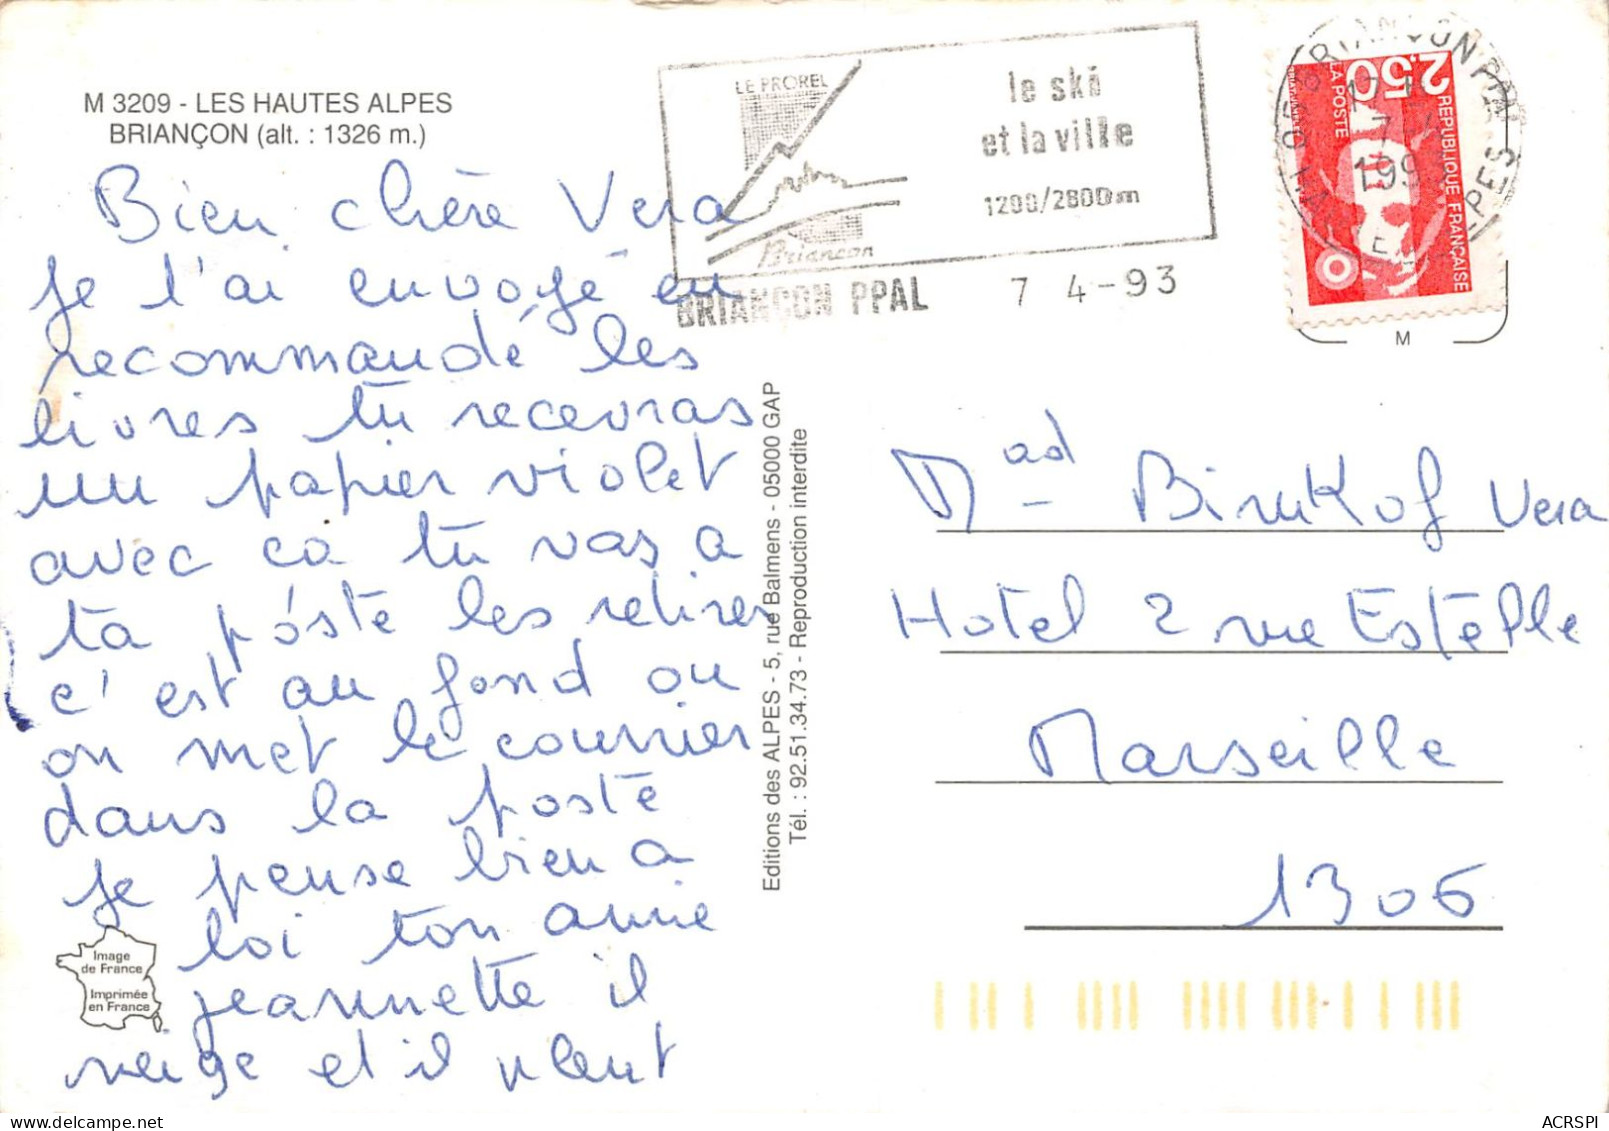 M 3209 - LES HAUTES ALPES
BRIANÇON (alt. : 1326 m.)
Bien chère Vera
je l'ai envoyé en
recommandé les
livres tu recevras
un papier violet
avec ca tu vas a
ta poste les retirer
c'est au fond ou
on met le courrier
dans la poste
je pense bien a
toi ton amie
jeannette il
neige et il pleut
Image
de France
Imprimée
en France
Editions des ALPES - 5, rue Balmens - 05000 GAP
Tél. : 92.51.34.73 - Reproduction interdite
LE PROREL
Briancon
le ski
et la ville
1200/2800m
BRIANCON PPAL 7 4-93
BRIANCON PPAL
7
1993
2,50
LA POSTE
REPUBLIQUE FRANÇAISE
M
Mad Binkof Vera
Hotel 2 rue Estelle
Marseille
1306
ACRSPI